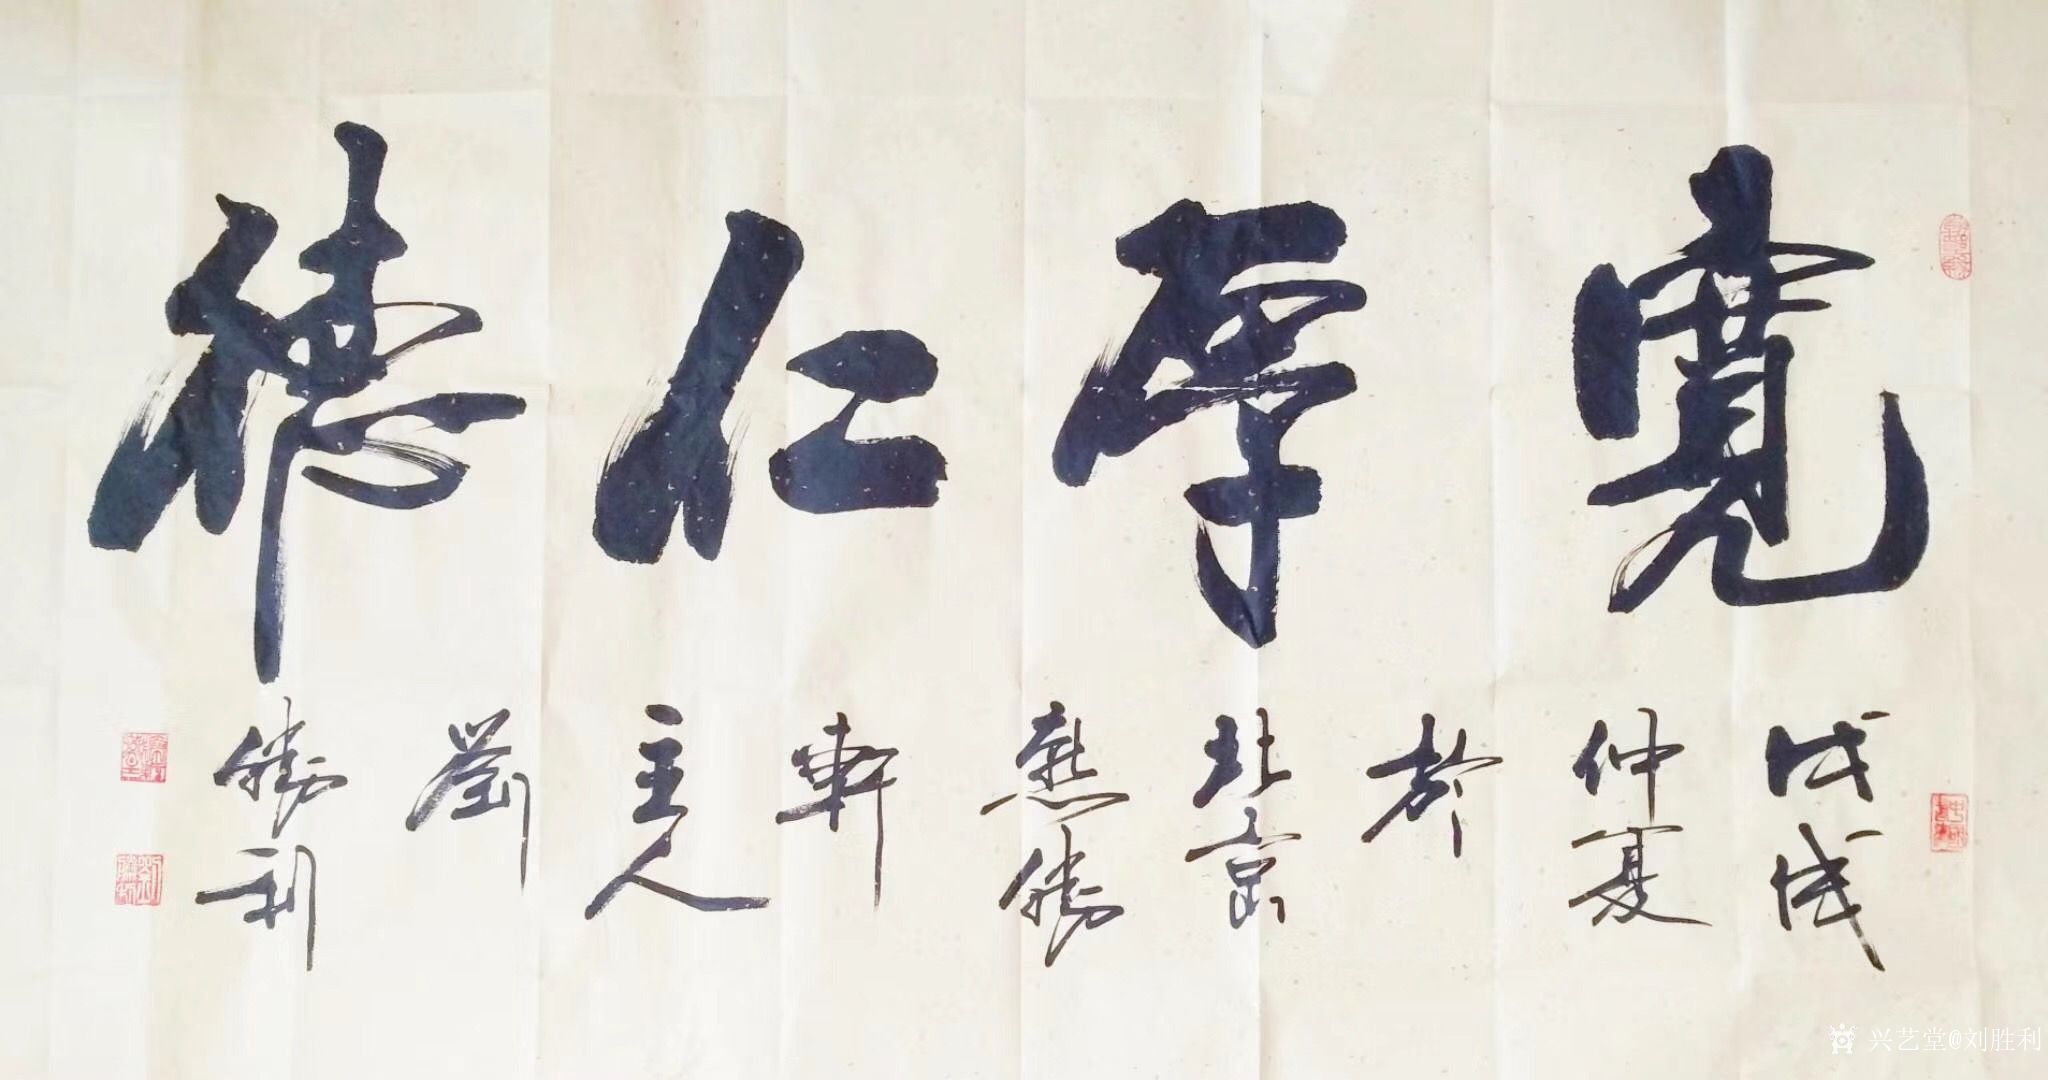 寬厚仁德
戊戌
仲夏
於
北京
燕勝
軒
主人
劉
勝利
兴艺堂@刘胜利